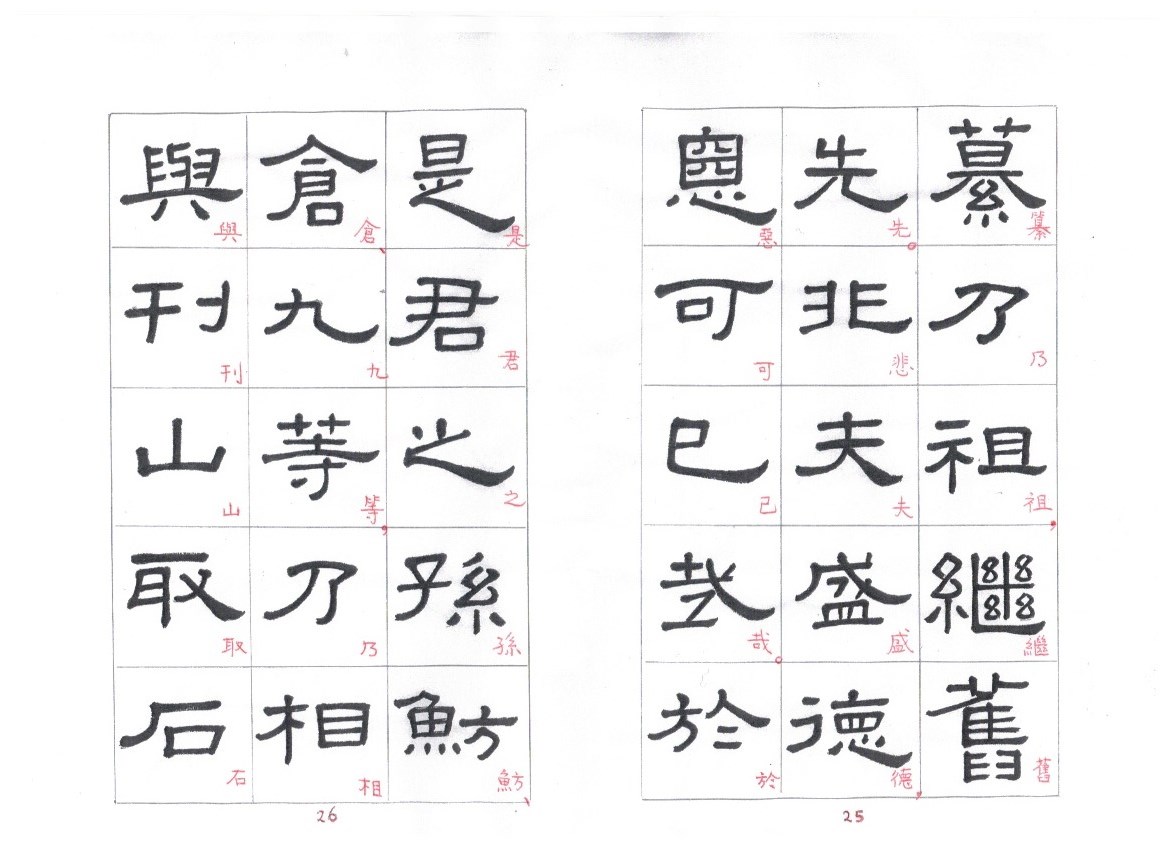 纂乃祖繼舊
纂乃祖，繼舊
先非夫盛德
先。悲夫盛德，
惡可已哉於
惡可已哉。於
25
是君之孫魴
是君之孫魴、
倉九等乃相
倉、九等，乃相
與刊山取石
與刊山取石
26